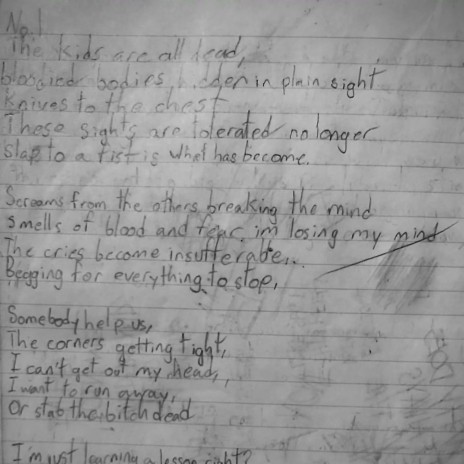 No.1
The kids are all dead,
bloodied bodies, in plain sight
Knives to the chest
These sights are tolerated no longer
Slap to a fist is what has become.
Screams from the others breaking the mind
Smells of blood and fear, im losing my mind
The cries become insufferabe,..
Begging for everything to stop,
Somebody help us,
The corners getting tight,
I can't get out my head,,
I want to run away,
Or stab the bitch dead
I'm just learning a lesson right?